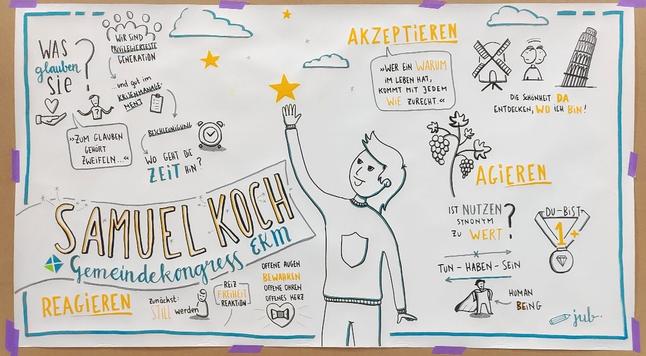 WAS
glauben
SIE?
WIR SIND
PRIVILEGIERTESTE
GENERATION
...und gut im
KRISENMANAGE-
MENT
»ZUM GLAUBEN
GEHÖRT
ZWEIFELN...«
BESCHLEUNIGUNG
WO GEHT DIE
ZEIT HIN?
SAMUEL KOCH
Gemeindekongress EKM
REAGIEREN
zunächst:
STILL werden
REIZ
FREIHEIT
REAKTION
OFFENE AUGEN
BEWAHREN
OFFENE OHREN
OFFENES HERZ
AKZEPTIEREN
»WER EIN WARUM
IM LEBEN HAT,
KOMMT MIT JEDEM
WIE ZURECHT.«
DIE SCHÖNHEIT DA
ENTDECKEN, WO ICH BIN!
AGIEREN
IST NUTZEN
SYNONYM
ZU WERT?
DU-BIST
1+
TUN-HABEN-SEIN
HUMAN
BEING
jub.